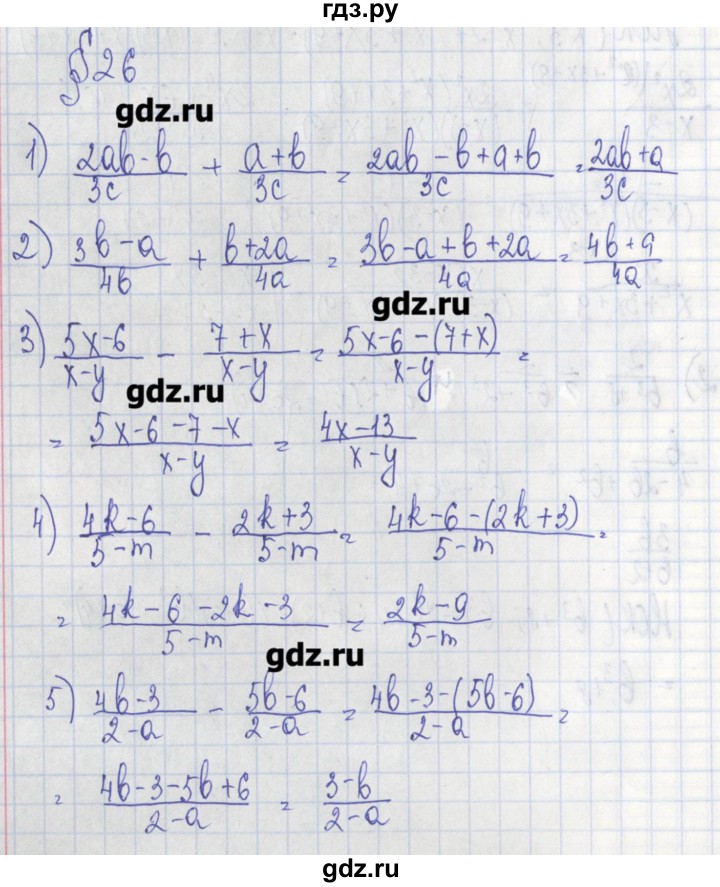 гдз.ру
§ 26
gdz.ru
1) (2ab - b)/3c + (a + b)/3c = (2ab - b + a + b)/3c = (2ab + a)/3c
2) (3b - a)/4b + (b + 2a)/4a = (3b - a + b + 2a)/4a = (4b + a)/4a
gdz.ru
3) (5x - 6)/(x - y) - (7 + x)/(x - y) = (5x - 6 - (7 + x))/(x - y) =
gdz.ru
= (5x - 6 - 7 - x)/(x - y) = (4x - 13)/(x - y)
4) (4k - 6)/(5 - m) - (2k + 3)/(5 - m) = (4k - 6 - (2k + 3))/(5 - m) =
= (4k - 6 - 2k - 3)/(5 - m) = (2k - 9)/(5 - m)
gdz.ru
5) (4b - 3)/(2 - a) - (5b - 6)/(2 - a) = (4b - 3 - (5b - 6))/(2 - a) =
= (4b - 3 - 5b + 6)/(2 - a) = (3 - b)/(2 - a)
gdz.ru